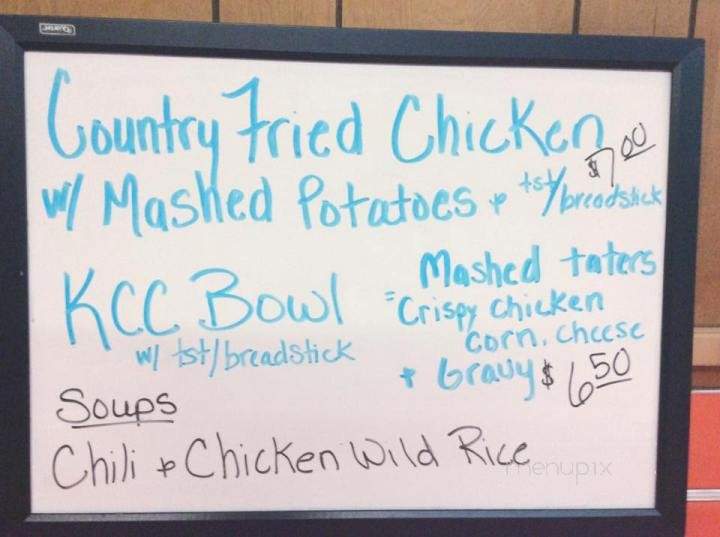 Quartet
Country Fried Chicken
$7.00
w/ Mashed Potatoes + tst/breadstick
KCC Bowl = Mashed taters
Crispy chicken
corn, cheese
w/ tst/breadstick
+ Gravy $6.50
Soups
Chili + Chicken Wild Rice
menupix